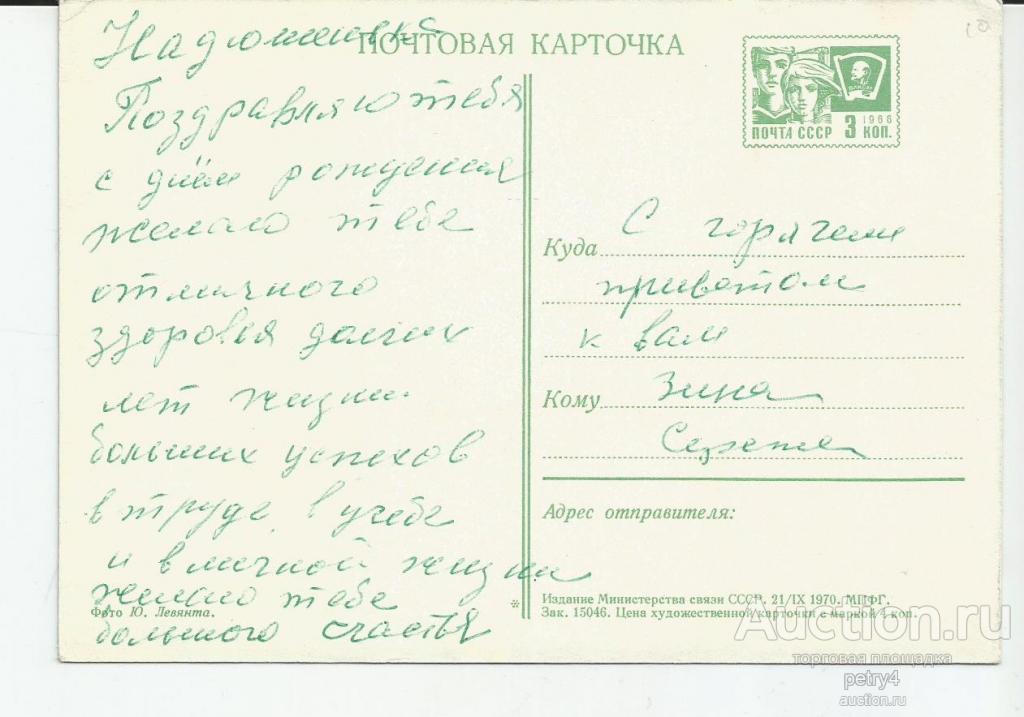 Надюшенька
ПОЧТОВАЯ КАРТОЧКА
Поздравляю тебя
с днём рождения
желаю тебе
отличного
здоровья долгих
лет жизни
больших успехов
в труде, в учебе
и в личной жизни
желаю тебе
большого счастья
Фото Ю. Левянта.
1966
ПОЧТА СССР 3 КОП.
Куда С горячем
приветом
к вам
Кому Зина
Сережа
Адрес отправителя:
Издание Министерства связи СССР. 21/IX 1970. МПФГ.
Зак. 15046. Цена художественной карточки с маркой 4 коп.
Auction.ru
торговая площадка
petry4
auction.ru